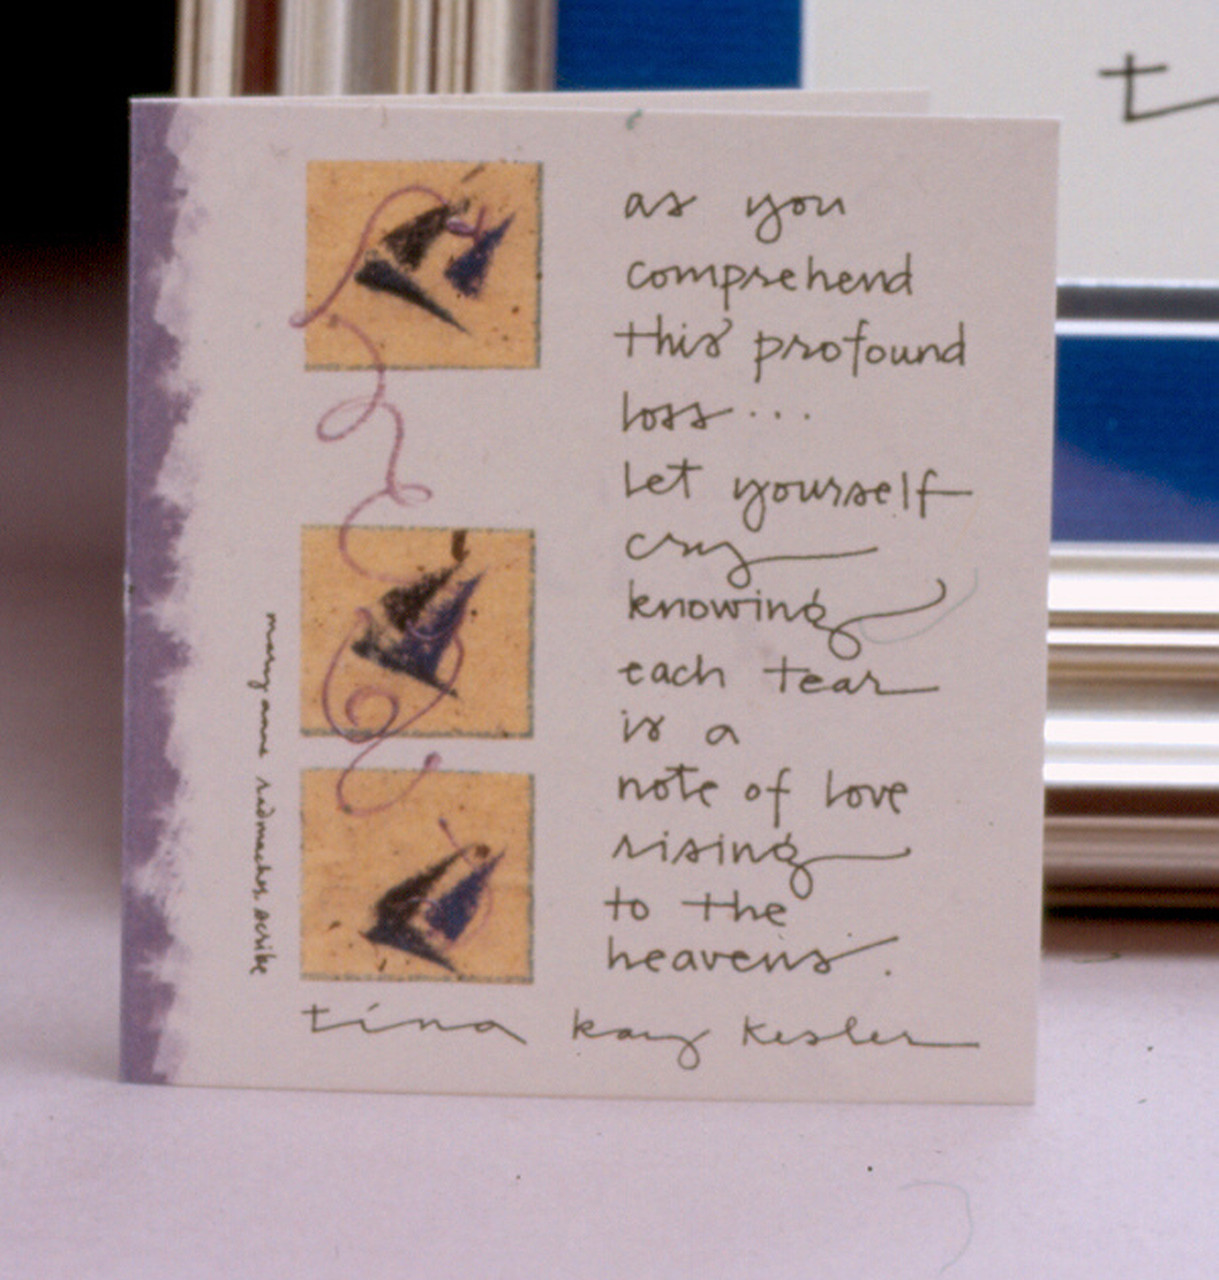 as you
comprehend
this profound
loss...
let yourself
cry
knowing
each tear
is a
note of love
rising
to the
heavens.
tina kay kesler
mary anne radmacher, scribe
t